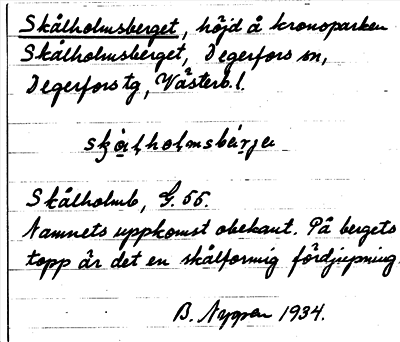 Skålholmsberget, höjd å kronoparken
Skålholmsberget, Degerfors sn,
Degerfors tg, Västerb. l.
Skålholmb, G. 55.
Namnets uppkomst obekant. På bergets
topp är det en skålformig fördjupning.
B. 1934.